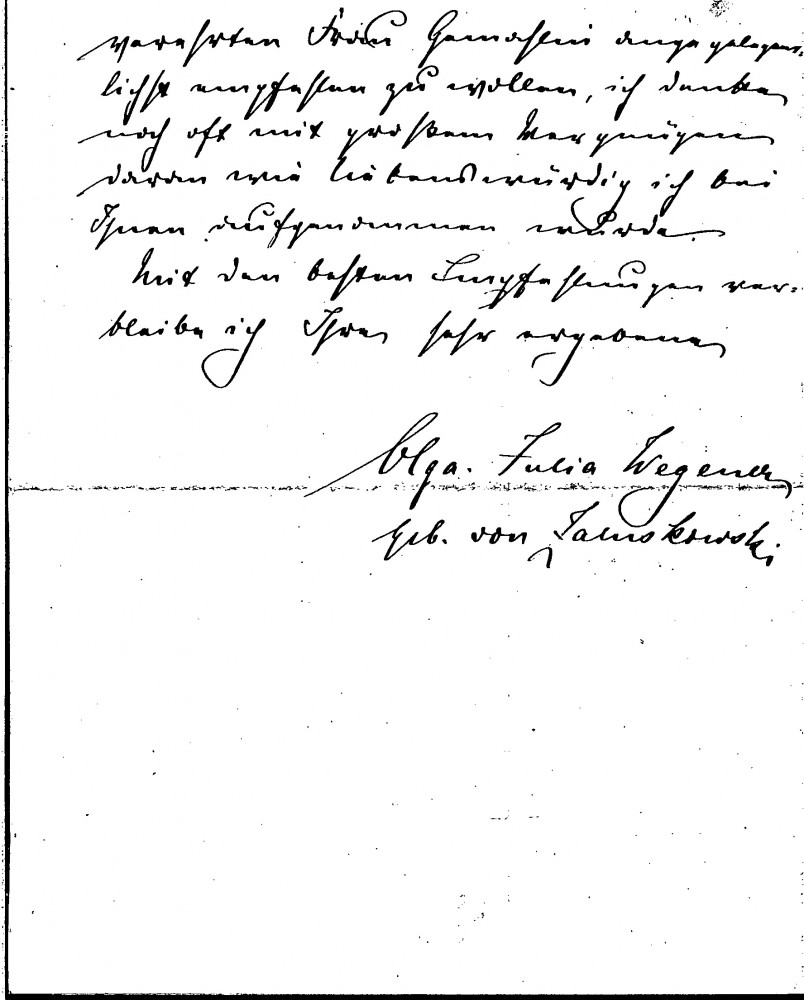 verehrten Frau Gemahlin angegelegent-
lichst empfehlen zu wollen, ich denke
noch oft mit großem Vergnügen
daran wie liebenswürdig ich bei
Ihnen aufgenommen wurde.
Mit den besten Empfehlungen ver-
bleibe ich Ihre sehr ergebene
Olga. Julia Wegener
geb. von